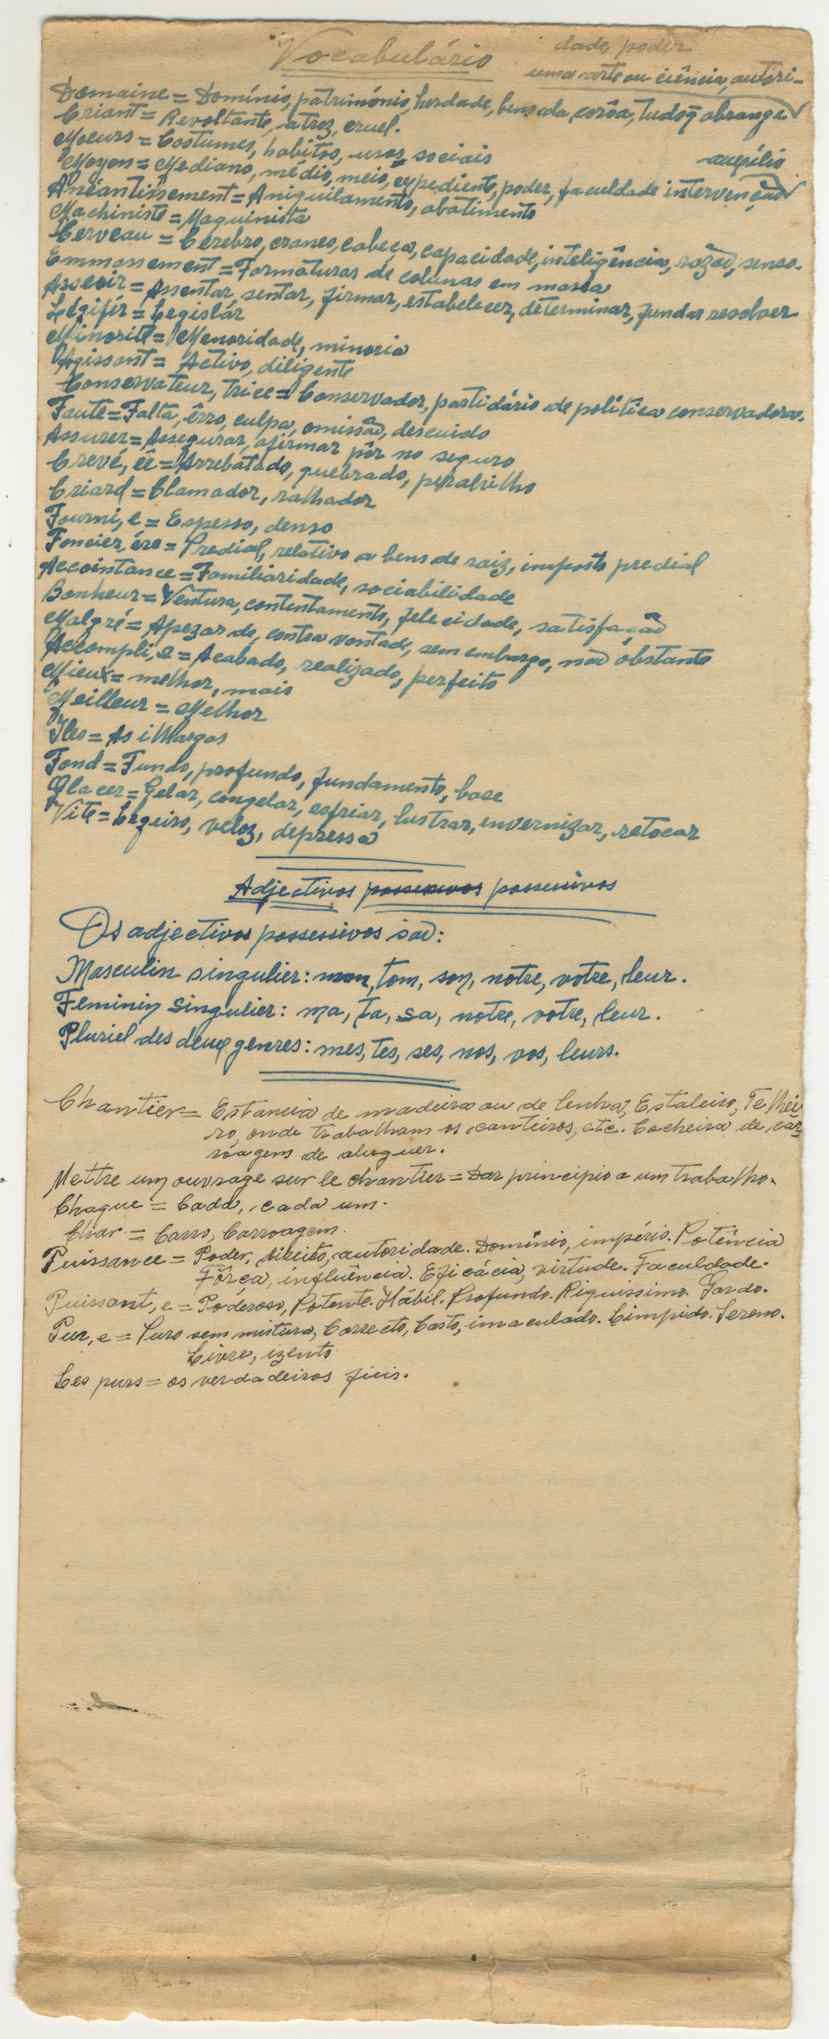 Vocabulário
dade, poder
uma arte ou ciência, autori-
Domaine = Domínio, património, herdade, bens da corôa, tudo q̃ abrange
Criant = Revoltante, atroz, cruel.
Moeurs = Costumes, habitos, usos sociais
auxílio
Moyen = Mediano, médio, meio, expediente, poder, faculdade intervenção
Anéantissement = Aniquilamento, abatimento
Machiniste = Maquinista
Cerveau = Cérebro, craneo, cabeça, capacidade, inteligência, razão, senso.
Emmassement = Formaturas de colunas em massa
Asseoir = Assentar, sentar, firmar, estabelecer, determinar, fundar resolver
Légifér = Legislár
Minorité = Menoridade, minoria
Agissant = Activo, diligente
Conservateur, trice = Conservador, partidário de política conservadora.
Faute = Falta, êrro, culpa, omissão, descuido
Assurer = Assegurar, afirmar pôr no seguro
Crevé, éé = Arrebatado, quebrado, peralvilho
Criard = Clamador, ralhador
Fourni, e = Espesso, denso
Foncier, ére = Predial, relativo a bens de raiz, imposto predial
Accointance = Familiaridade, sociabilidade
Bonheur = Ventura, contentamento, felecidade, satisfação
Malgré = Apezar de, contra vontade, sem embargo, não óbstante
Accompli, e = Acabado, realizado, perfeito
Mieux = melhor, mais
Meilleur = Melhor
Iles = As ilhargas
Fond = Fundo, profundo, fundamento, base
Glacer = Gelar, congelar, esfriar, lustrar, invernizar, retocar
Vite = Ligeiro, veloz, depressa
Adjectivos possessivos possessivos
Os adjectivos possessivos são:
Masculin singulier: mon, tom, son, notre, votre, leur.
Feminin singulier: ma, ta, sa, notre, votre, leur.
Pluriel des deux genres: mes, tes, ses, nos, vos, leurs.
Chantier = Estancia de madeira ou de lenha, Estaleiro, Telhei-
ro, onde trabalham os canteiros, etc. Cocheira de car-
roagens de aluguer.
Mettre um ouvrage sur le chantier = Dar principio a um trabalho.
Chaque = Cada, cada um.
Char = Carro, Carroagem.
Puissance = Poder, direito, autoridade. Domínio, império. Potência
Fôrça, influência. Eficácia, virtude. Faculdade.
Puissant, e = Poderoso, Potente. Hábil. Profundo. Riquissimo. Gordo.
Pur, e = Puro sem mistura, Correcto, Casto, imaculado. Limpido. Sereno.
Livre, izento
Les purs = os verdadeiros fieis.